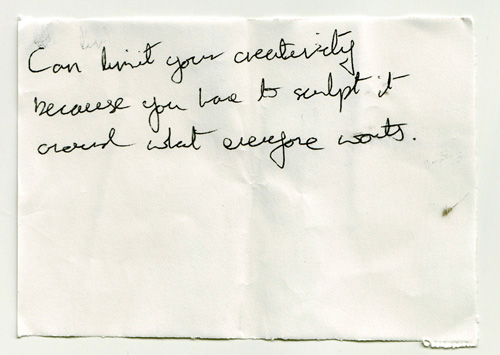 Can limit your creativity
because you have to sculpt it
around what everyone wants.